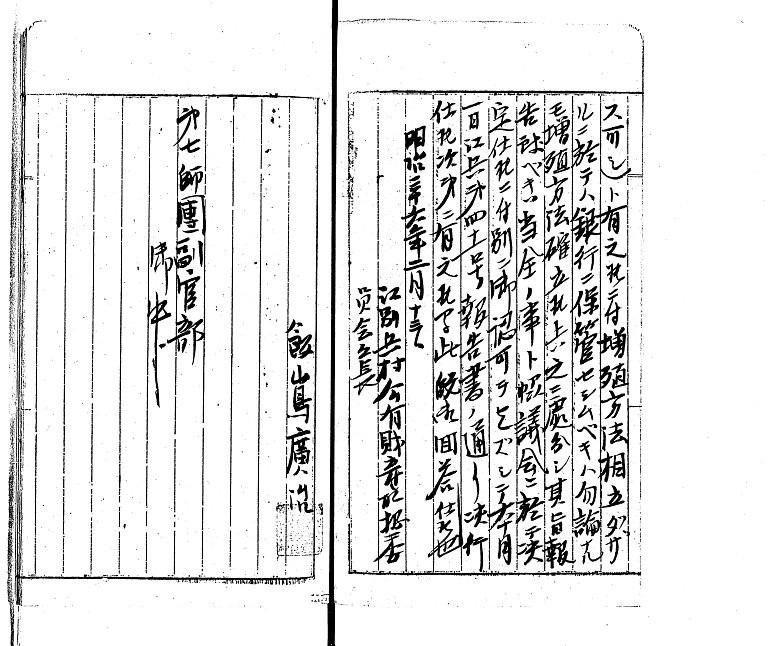 スベシト有之候ニ付増殖方法相立タザ
ルニ於テハ銀行ニ保管セシムベキハ勿論尤
モ増殖方法確立候上ハ之ニ処分シ其旨報
告致スベキハ当会ノ事ト議会ニ於テ決
定仕候ニ付別ニ御認可ヲ乞ズシテ本月
一日江兵第四十号報告書ノ通リ決行
仕候次第ニ有之候間此段御回答仕候也
明治三十六年二月十三日
江別兵村公有財産取扱委
員会々長
飯嶌廣治
第七師團副官部
御中